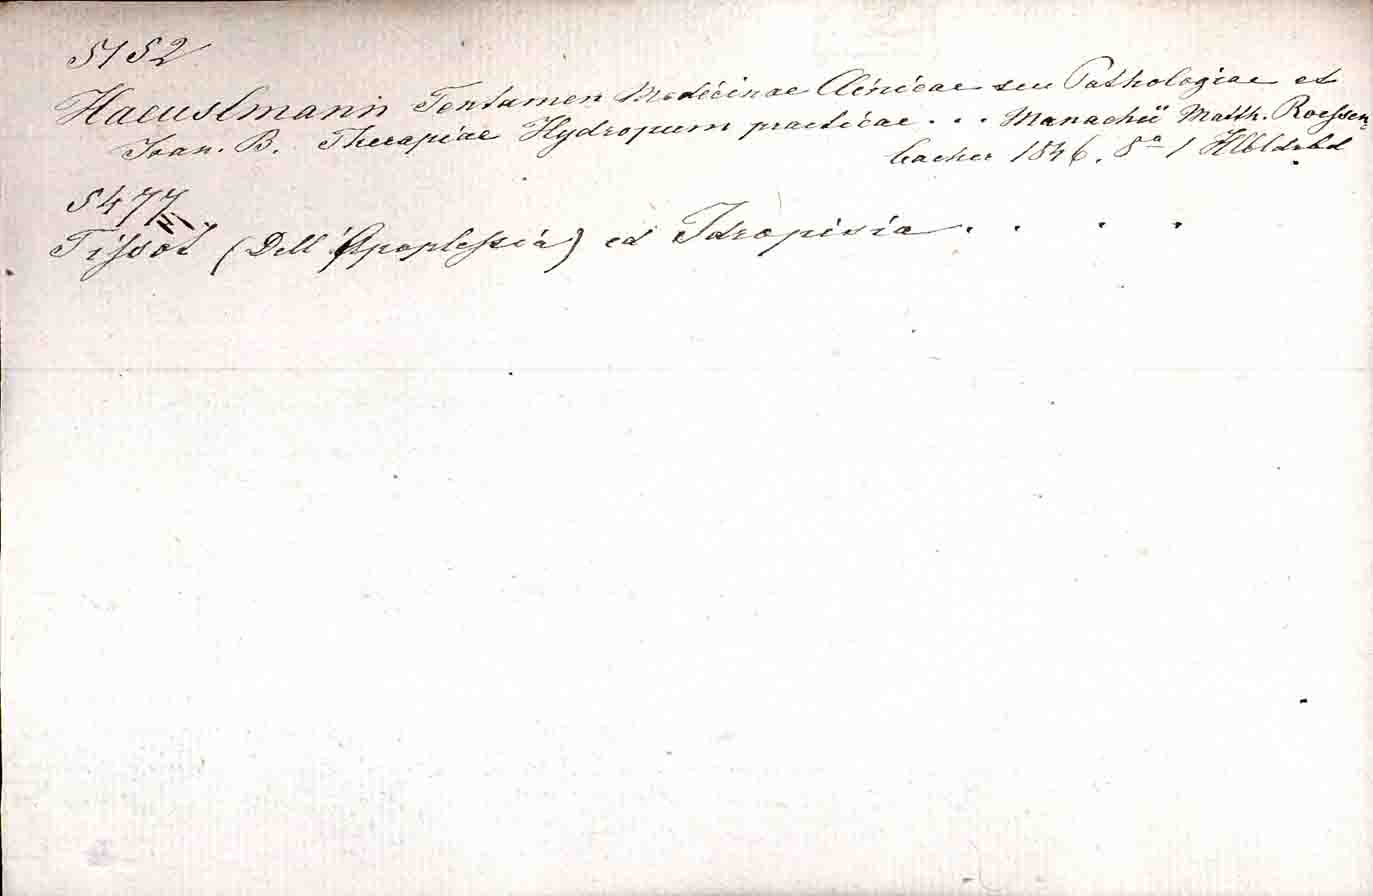 5152
Haeuslmann Tentamen Medicinae Clinicae seu Pathologiae et
Joan. B. Therapiae Hydropum practicae . . . Monachii Matth. Roessen=
bacher 1846. 8º 1 Hlbldrbd
5477
VI.
Tissot (Dell' Apoplessia) ed Idropisia . . . .